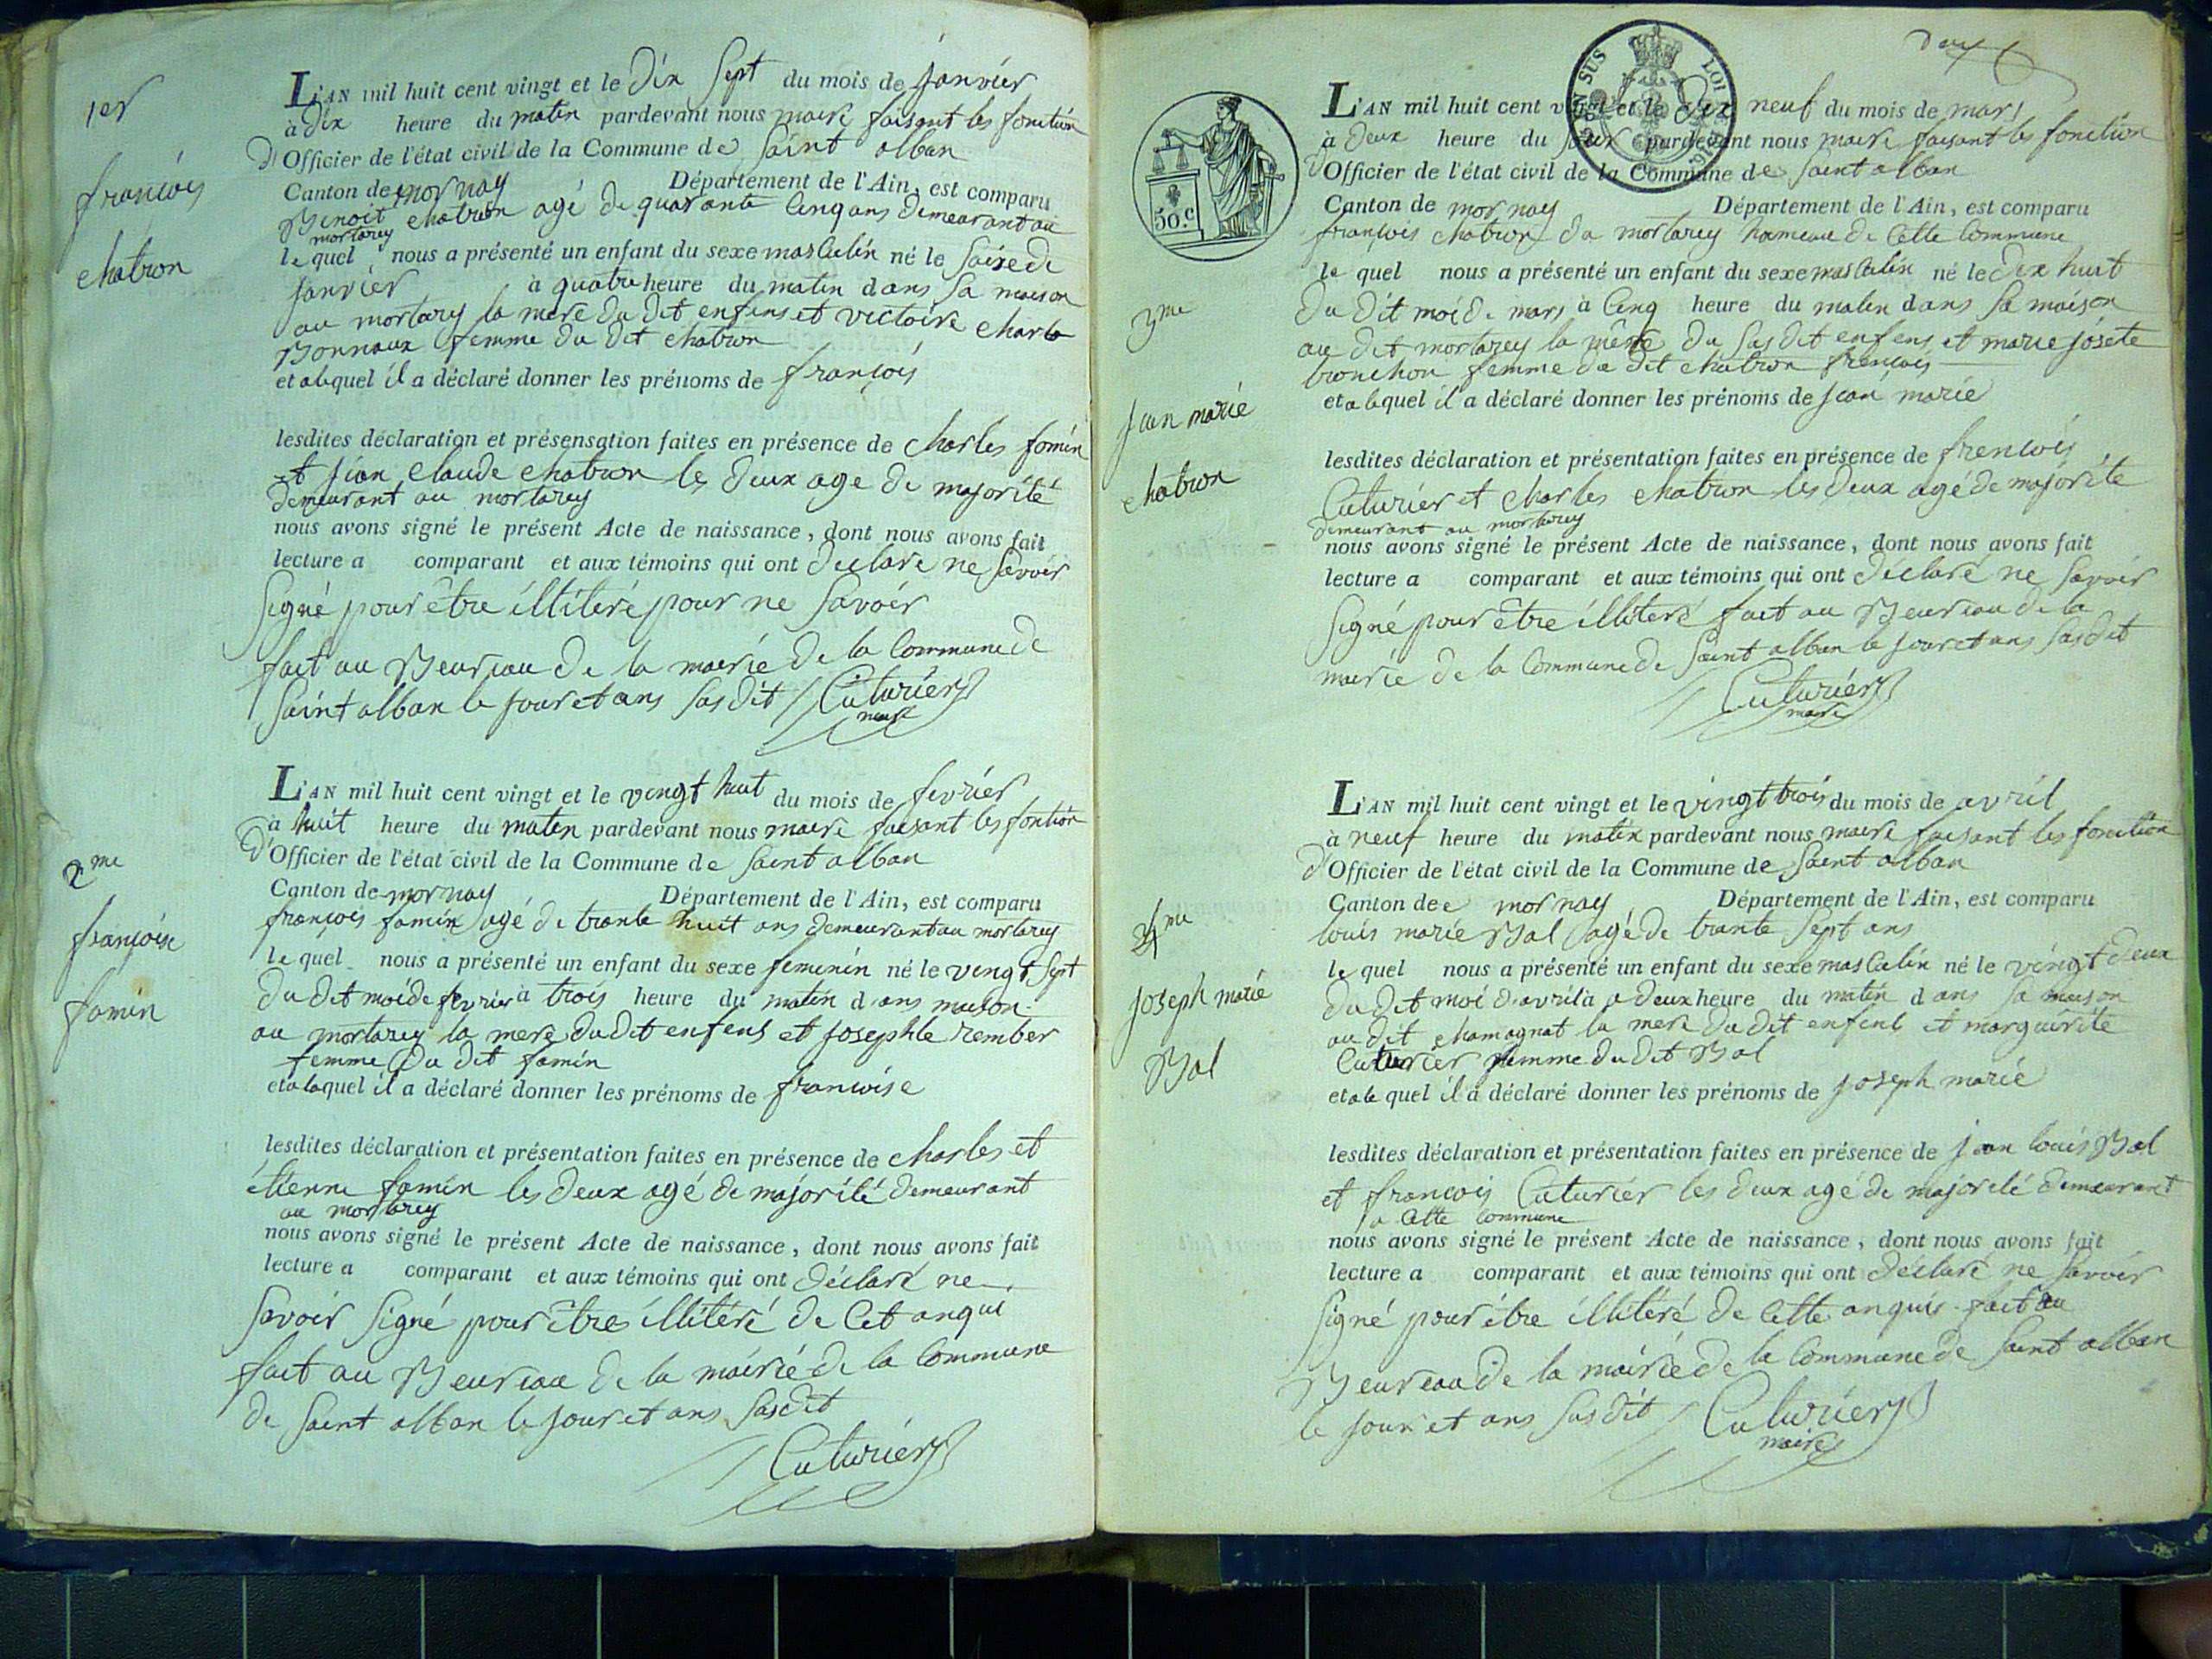 1er
françois
chatron
L'AN mil huit cent vingt et le dix sept du mois de janvier
à dix heure du matin pardevant nous maire faisant les fonction
d'Officier de l'état civil de la Commune de saint alban
Canton de mornay Département de l'Ain, est comparu
Benoit chatron agé de quarante cinq ans demeurant au
mortarey
le quel nous a présenté un enfant du sexe masculin né le saize de
janvier à quatre heure du matin dans sa maison
au mortarey la mere du dit enfens et victoire charlo
Bonnaux femme du dit chatron
et alequel il a déclaré donner les prénoms de françois
lesdites déclaration et présensation faites en présence de charles fomin
et jian claude chatron les deux age de majorité
demeurant au mortarey
nous avons signé le présent Acte de naissance, dont nous avons fait
lecture a comparant et aux témoins qui ont declare ne savoir
signé pour être illitéré pour ne savoir
fait au Beureau de la mairie de la commune de
saint alban le jour et ans sas dit Cuturier
maire
2me
françoise
famin
L'AN mil huit cent vingt et le vingt huit du mois de fevrier
à huit heure du matin pardevant nous maire faisant les fontion
d'Officier de l'état civil de la Commune de saint alban
Canton de mornay Département de l'Ain, est comparu
françois famin agé de trante huit ans demeurant au mortarey
le quel nous a présenté un enfant du sexe femenin né le vingt sept
du dit moi de fevrier à trois heure du matin dans maison
au mortarey la mere du dit enfens et josephle rember
femme du dit famin
et alaquel il a déclaré donner les prénoms de francoise
lesdites déclaration et présentation faites en présence de charles et
étienne famin les deux agé de majorité demeurant
au mortarey
nous avons signé le présent Acte de naissance, dont nous avons fait
lecture a comparant et aux témoins qui ont déclaré ne
savoir signé pour être illitéré de cet anqui
fait au Beureau de la mairié de la commune
de saint alban le jour et ans sasdit
Cuturier
deux
SUS
LOI
50.c
3me
jean marie
chatron
L'AN mil huit cent vingt et le dix neuf du mois de mars
à deux heure du soir pardevant nous maire faisant les fonction
d'Officier de l'état civil de la Commune de saint alban
Canton de mornay Département de l'Ain, est comparu
françois chatron da mortarey hameau de cette commune
le quel nous a présenté un enfant du sexe masculin né le dix huit
du dit moi de mars à cinq heure du matin dans sa maison
au dit mortarey la mére du sasdit enfens et marie joséte
tronchon femme du dit chatron françois
et alequel il a déclaré donner les prénoms de jean marie
lesdites déclaration et présentation faites en présence de frencois
Cuturier et charles chatron les deux agé de majorité
demeurant au mortarey
nous avons signé le présent Acte de naissance, dont nous avons fait
lecture a comparant et aux témoins qui ont déclaré ne savoir
signé pour être illiteré fait au Beureau de la
mairie de la commune de saint alban le jour et ans sasdit
Cuturier
maire
4me
joseph marie
Bal
L'AN mil huit cent vingt et le vingt trois du mois de avril
à neuf heure du matin pardevant nous maire faisant les fonction
d'Officier de l'état civil de la Commune de saint alban
Canton dee mornay Département de l'Ain, est comparu
louis marie Bal agé de trante sept ans
le quel nous a présenté un enfant du sexe masculin né le vingt deux
du dit moi d'avril à deux heure du matin dans sa maison
au dit chamagnat la mere du dit enfent et marguirite
Cuturier femme du dit Bal
et ale quel il a déclaré donner les prénoms de joseph marie
lesdites déclaration et présentation faites en présence de jean louis Bal
et françois Cuturier les deux agé de majorité demeurant
a cette commune
nous avons signé le présent Acte de naissance, dont nous avons fait
lecture a comparant et aux témoins qui ont déclaré ne savoir
signé pour être illitéré de cette anquis fait au
Beureau de la mairie de la commune de saint alban
le jour et ans sus dit Cuturier
maire